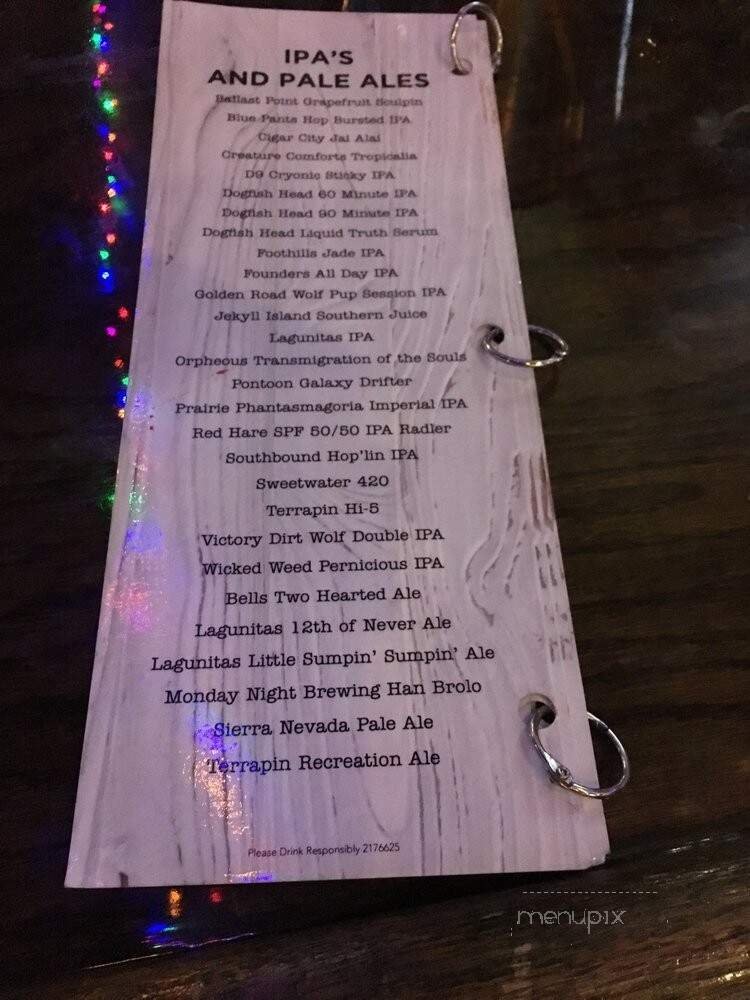 IPA'S
AND PALE ALES
Ballast Point Grapefruit Sculpin
Blue Pants Hop Bursted IPA
Cigar City Jai Alai
Creature Comforts Tropicalia
D9 Cryonic Sticky IPA
Dogfish Head 60 Minute IPA
Dogfish Head 90 Minute IPA
Dogfish Head Liquid Truth Serum
Foothills Jade IPA
Founders All Day IPA
Golden Road Wolf Pup Session IPA
Jekyll Island Southern Juice
Lagunitas IPA
Orpheous Transmigration of the Souls
Pontoon Galaxy Drifter
Prairie Phantasmagoria Imperial IPA
Red Hare SPF 50/50 IPA Radler
Southbound Hop'lin IPA
Sweetwater 420
Terrapin Hi-5
Victory Dirt Wolf Double IPA
Wicked Weed Pernicious IPA
Bells Two Hearted Ale
Lagunitas 12th of Never Ale
Lagunitas Little Sumpin' Sumpin' Ale
Monday Night Brewing Han Brolo
Sierra Nevada Pale Ale
Terrapin Recreation Ale
Please Drink Responsibly 2176625
menupix